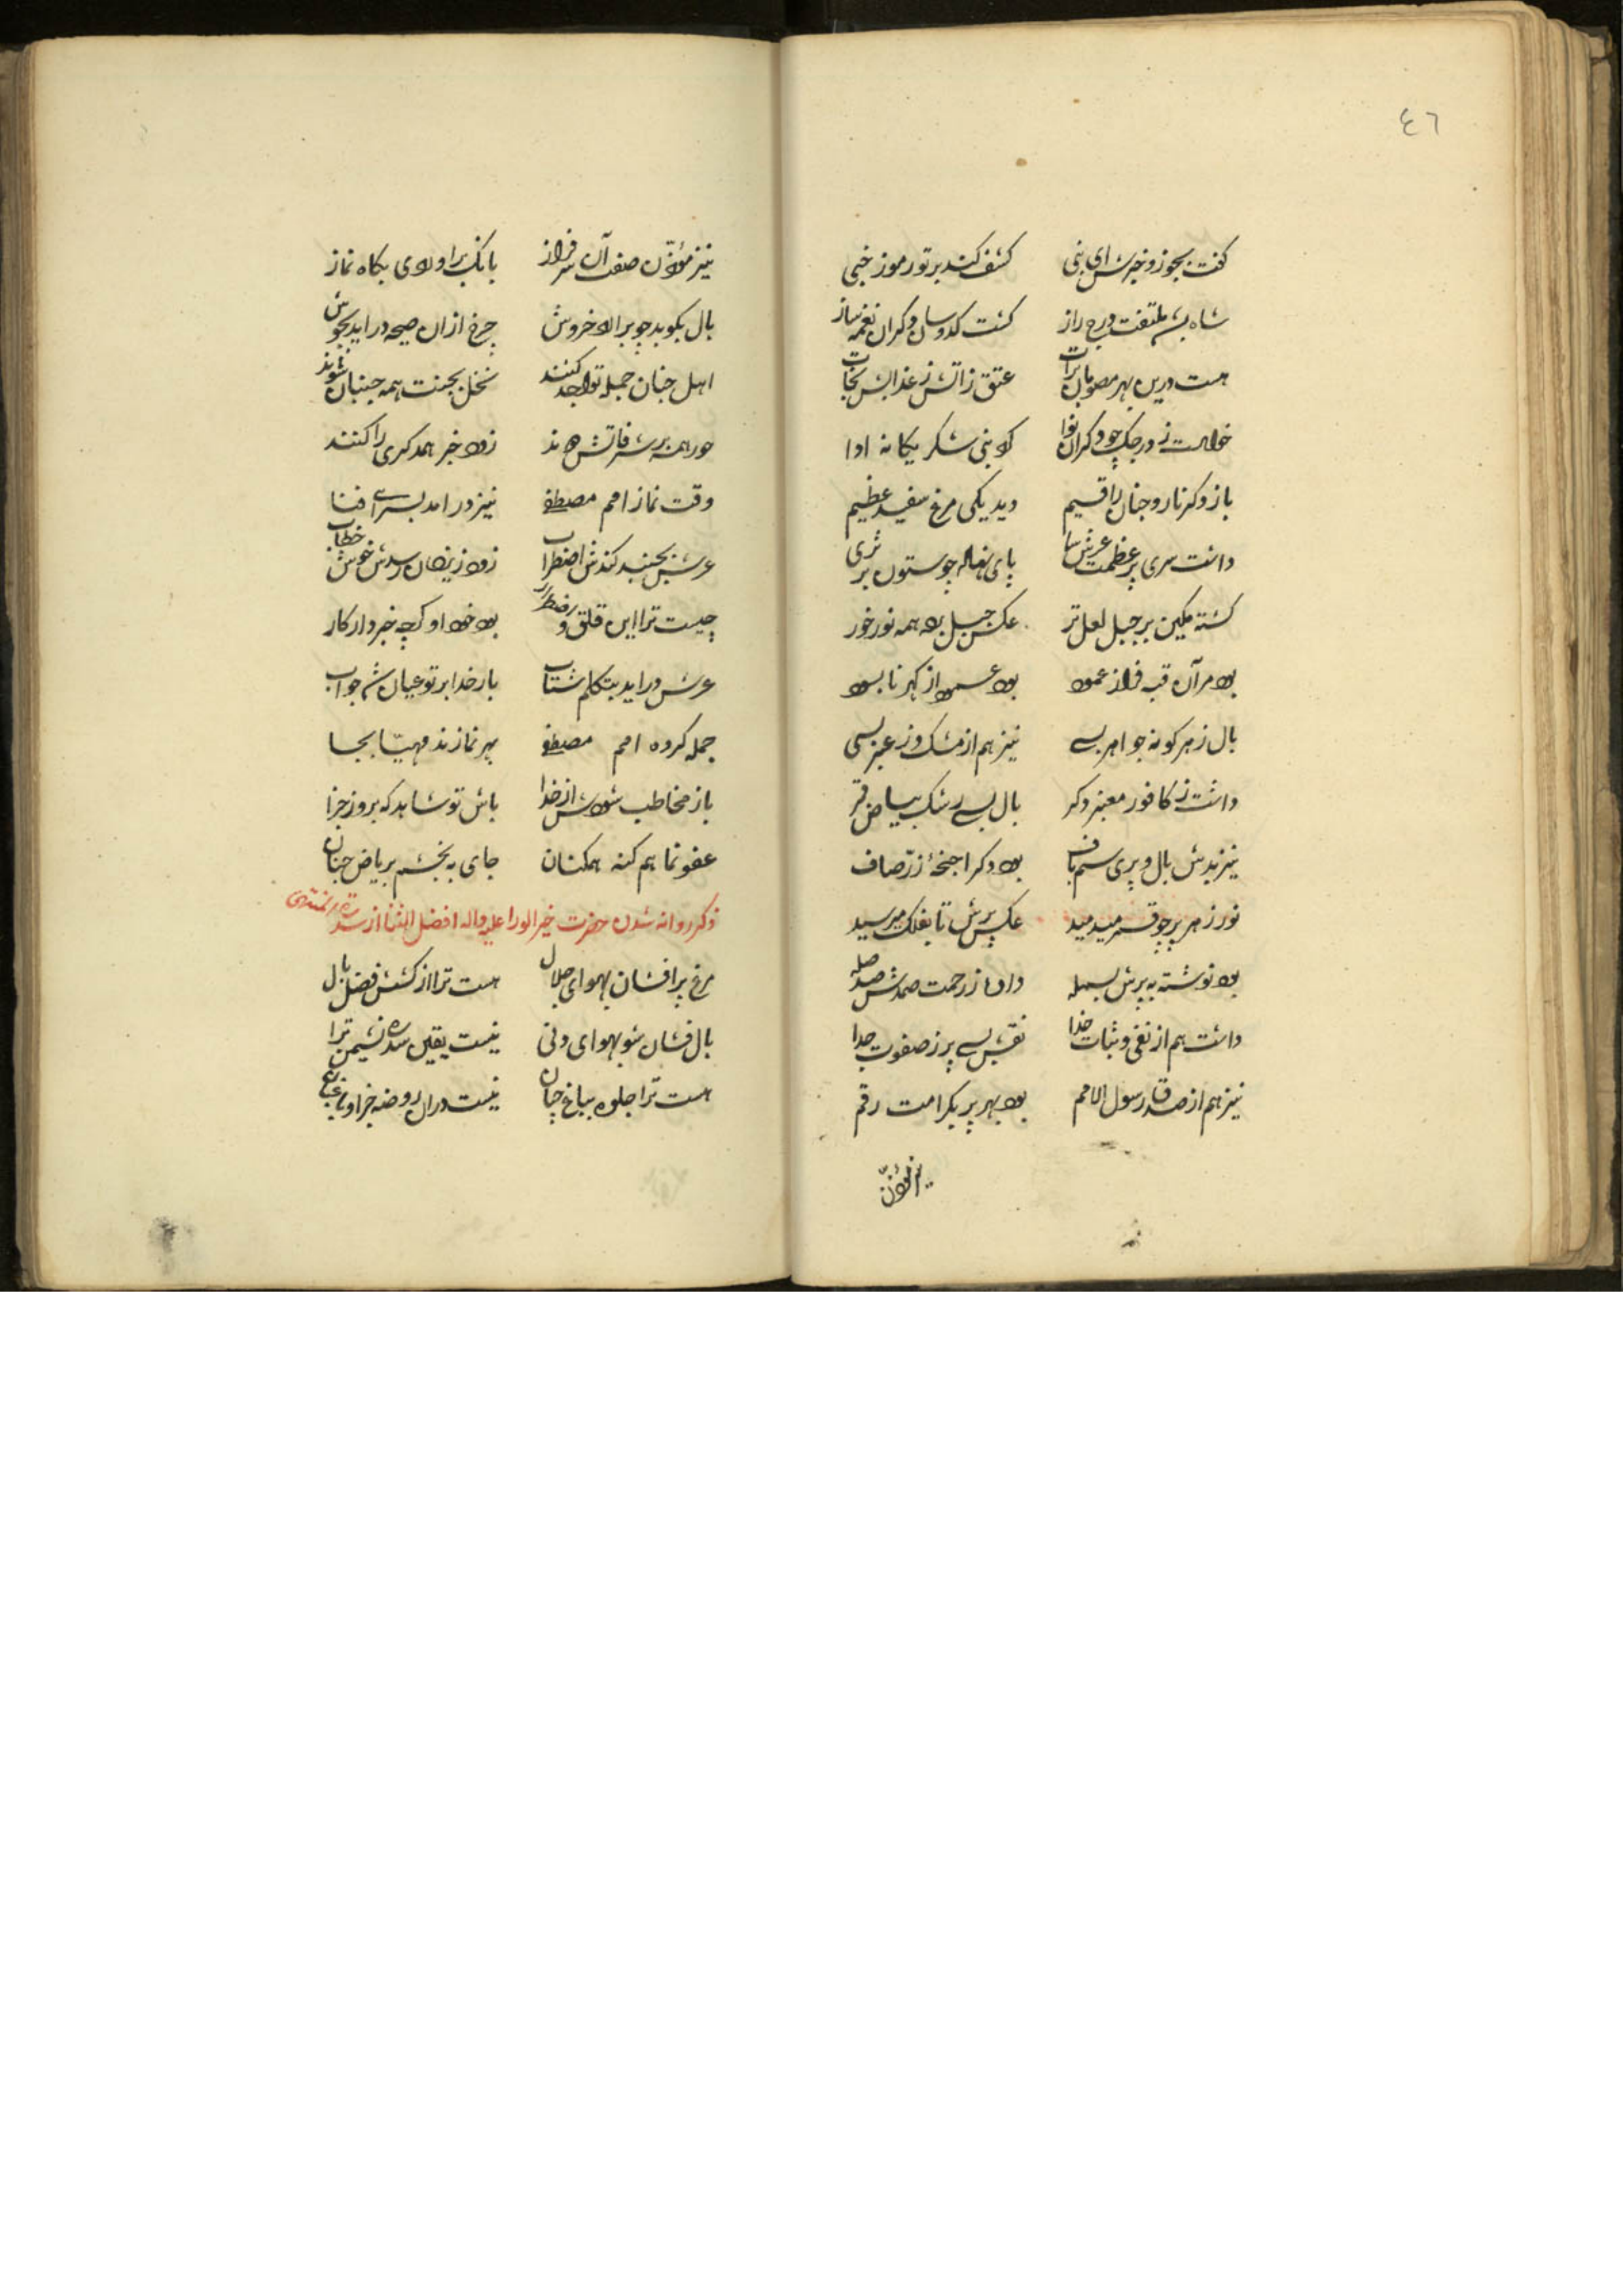 ٤٦
گفت بجو زو خبرش ای نبی کشف کند بر تو رموز خبی
شاه بشد ملتفت درج راز گشت کدوسان دکران نغمه ساز
هست درین بهر مصومان برات عتق ز آتش ز عذابش نجات
خواست ز درجک چو دکران نوا که نبی شکر یکانه ادا
باز دکر نار و جنان را قسیم دید یکی مرغ سفید عظیم
داشت سری پر عظمت عرش سا پای نهاده چو ستون بر ثری
کشته مکین بر جبل لعل تر عکس جبل بد همه نور خور
بود مر آن قبه فراز عمود بود عمود از کهر نابسود
بال ز هر کونه جواهر بسی نیز هم از مشک و ز عنبر بسی
داشت ز کافور معنبر دکر بال بسی رشک بیاض قمر
نیز بدش بال و پری سیم باف بود دکر اجنحهٔ زرّ صاف
نور ز هر پر چو قمر میدمید عکس پرش تا بفلک میرسید
بود نوشته به پرش بسمله داده ز رحمت صمدش صد صله
داشت هم از نفی و ثبات خدا نقش بسی پر ز صفوت جدا
نیز هم از صدق رسول الامم بود بهر پر بکرامت رقم
نیز مؤذّن
نیز مؤذّن صفت آن سرفراز بانک براوردی بکاه نماز
بال بکوبد چو برارد خروش چرخ ازان صیحه دراید بجوش
اهل جنان جمله تواجد کنند نخل بجنت همه جنبان شوند
حور همه بر شرفاتش دوند زود خبر همدکری را کنند
وقت نماز امم مصطفی نیز درامد بسرای فنا
عرش بجنبد کندش اضطراب زود ز یزدان رسدش خوش خطاب
چیست ترا این قلق و اضطرار بود خود او کرچه خبردار کار
عرش دراید بتکلم شتاب بار خدا بر تو عیان شد جواب
جمله کروه امم مصطفی بهر نمازند مهیّا بجا
باز مخاطب شودش از خدا باش تو شاهد که بروز جزا
عفو نماهم کنه همکنان جای به بخشم بریاض جنان
ذکر روانه شدن حضرت خیر الورا علیه واله افضل الثنا از سدرة المنتهی
مرغ پرافشان بهوای جلال هست ترا از کشش فضل بال
بال فشان شو بهوای دنی نیست یقین سدره نشیمن ترا
هست ترا جلوه بباغ جنان نیست دران روضه خزا و